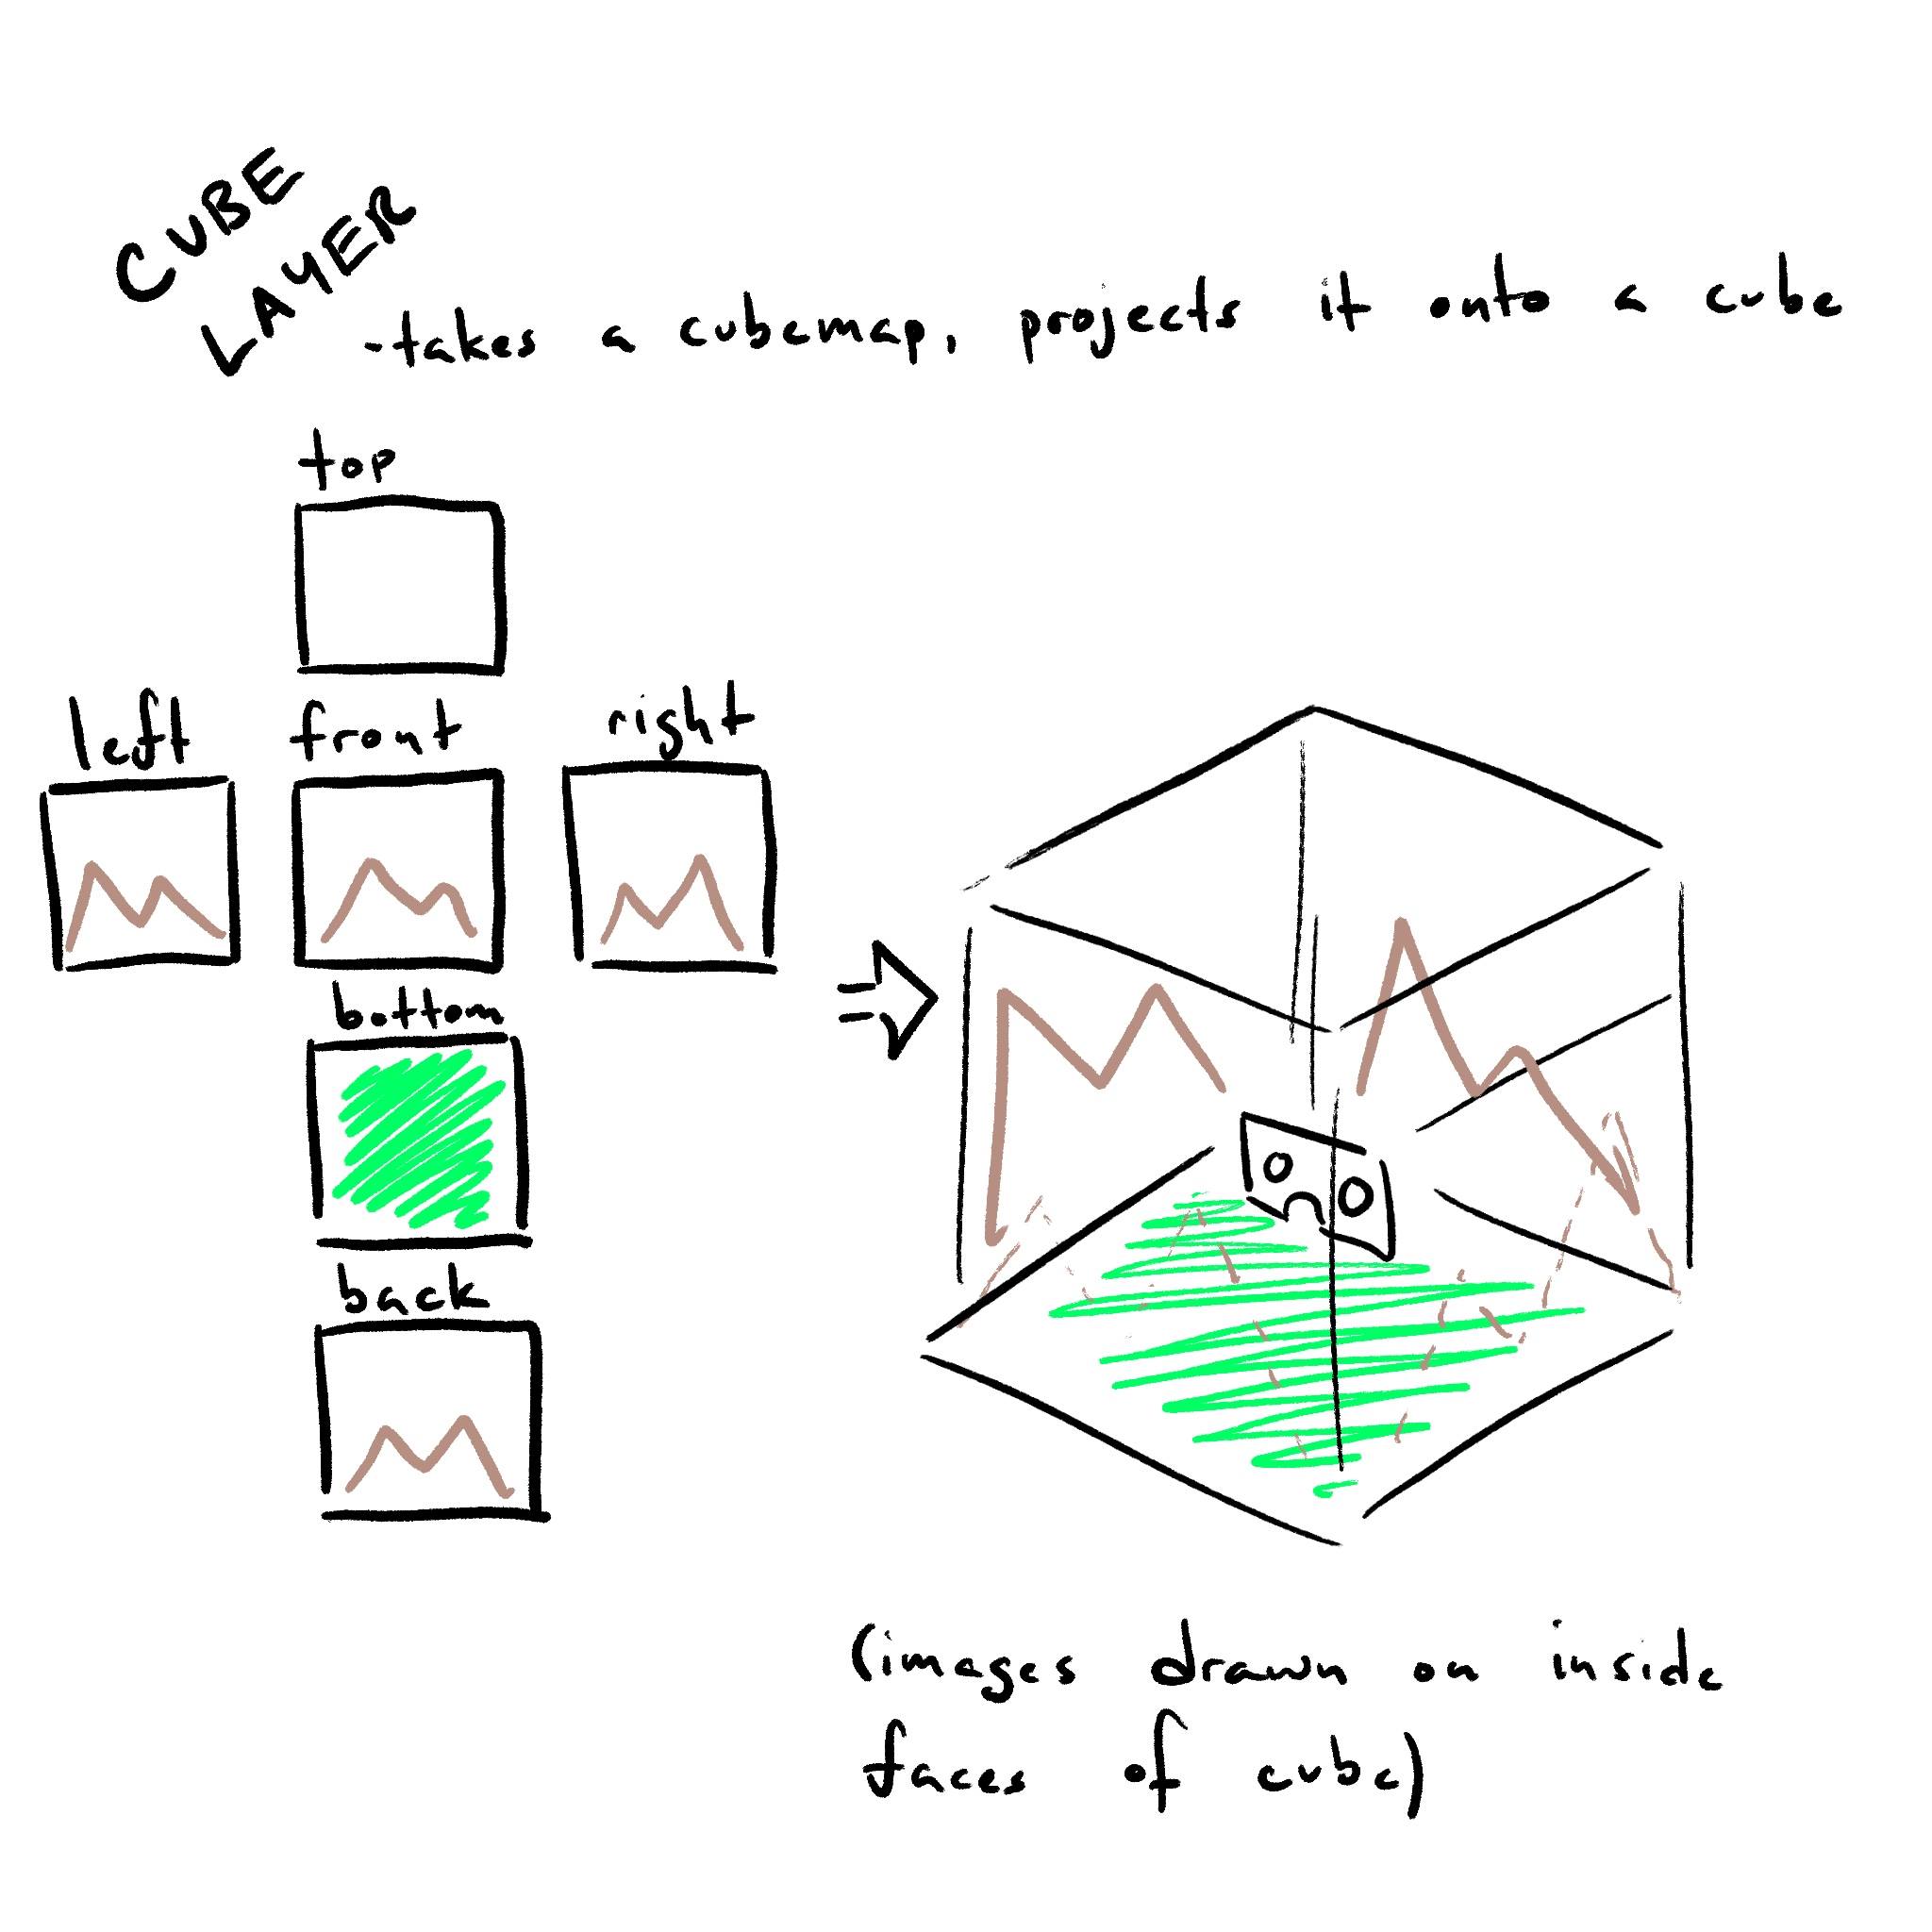 CUBE
LAYER
-takes a cubemap, projects it onto a cube
top
left front right
bottom
back
(images drawn on inside
faces of cube)